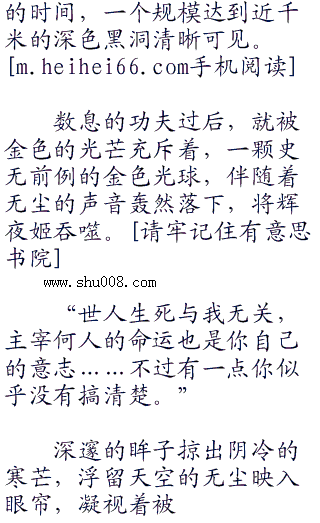 的时间，一个规模达到近千
米的深色黑洞清晰可见。
[m.heihei66.com手机阅读]
数息的功夫过后，就被
金色的光芒充斥着，一颗史
无前例的金色光球，伴随着
无尘的声音轰然落下，将辉
夜姬吞噬。[请牢记住有意思
书院]
www.shu008.com
“世人生死与我无关，
主宰何人的命运也是你自己
的意志……不过有一点你似
乎没有搞清楚。”
深邃的眸子掠出阴冷的
寒芒，浮留天空的无尘映入
眼帘，凝视着被